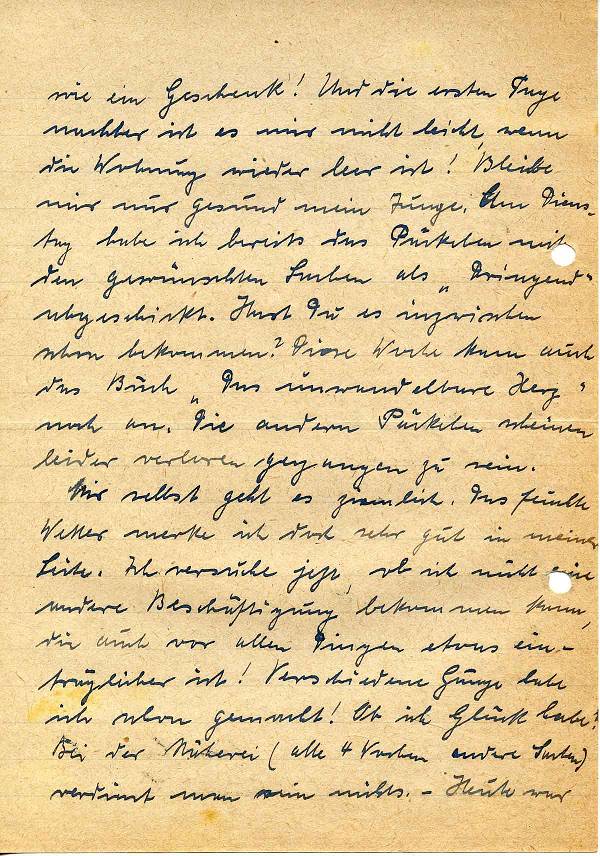 wie ein Geschenk! Und die ersten Tage
nachher ist es mir nicht leicht, wenn
die Wohnung wieder leer ist! Bleibe
mir nur gesund mein Junge. Am Diens-
tag habe ich bereits das Päckchen mit
den gewünschten Sachen als „Dringend"
abgeschickt. Hast Du es inzwischen
schon bekommen? Diese Woche kam auch
das Buch „Das unwandelbare Herz"
noch an. Die andern Päckchen scheinen
leider verloren gegangen zu sein.
Mir selbst geht es ziemlich. Das feuchte
Wetter merke ich doch sehr gut in meiner
Seite. Ich versuche jetzt, ob ich nicht eine
andere Beschäftigung bekommen kann,
die auch vor allen Dingen etwas ein-
träglicher ist! Verschiedene Gänge habe
ich schon gemacht! Ob ich Glück habe?
Bei der Näherei (alle 4 Wochen andere Sachen)
verdient man rein nichts. – Heute war